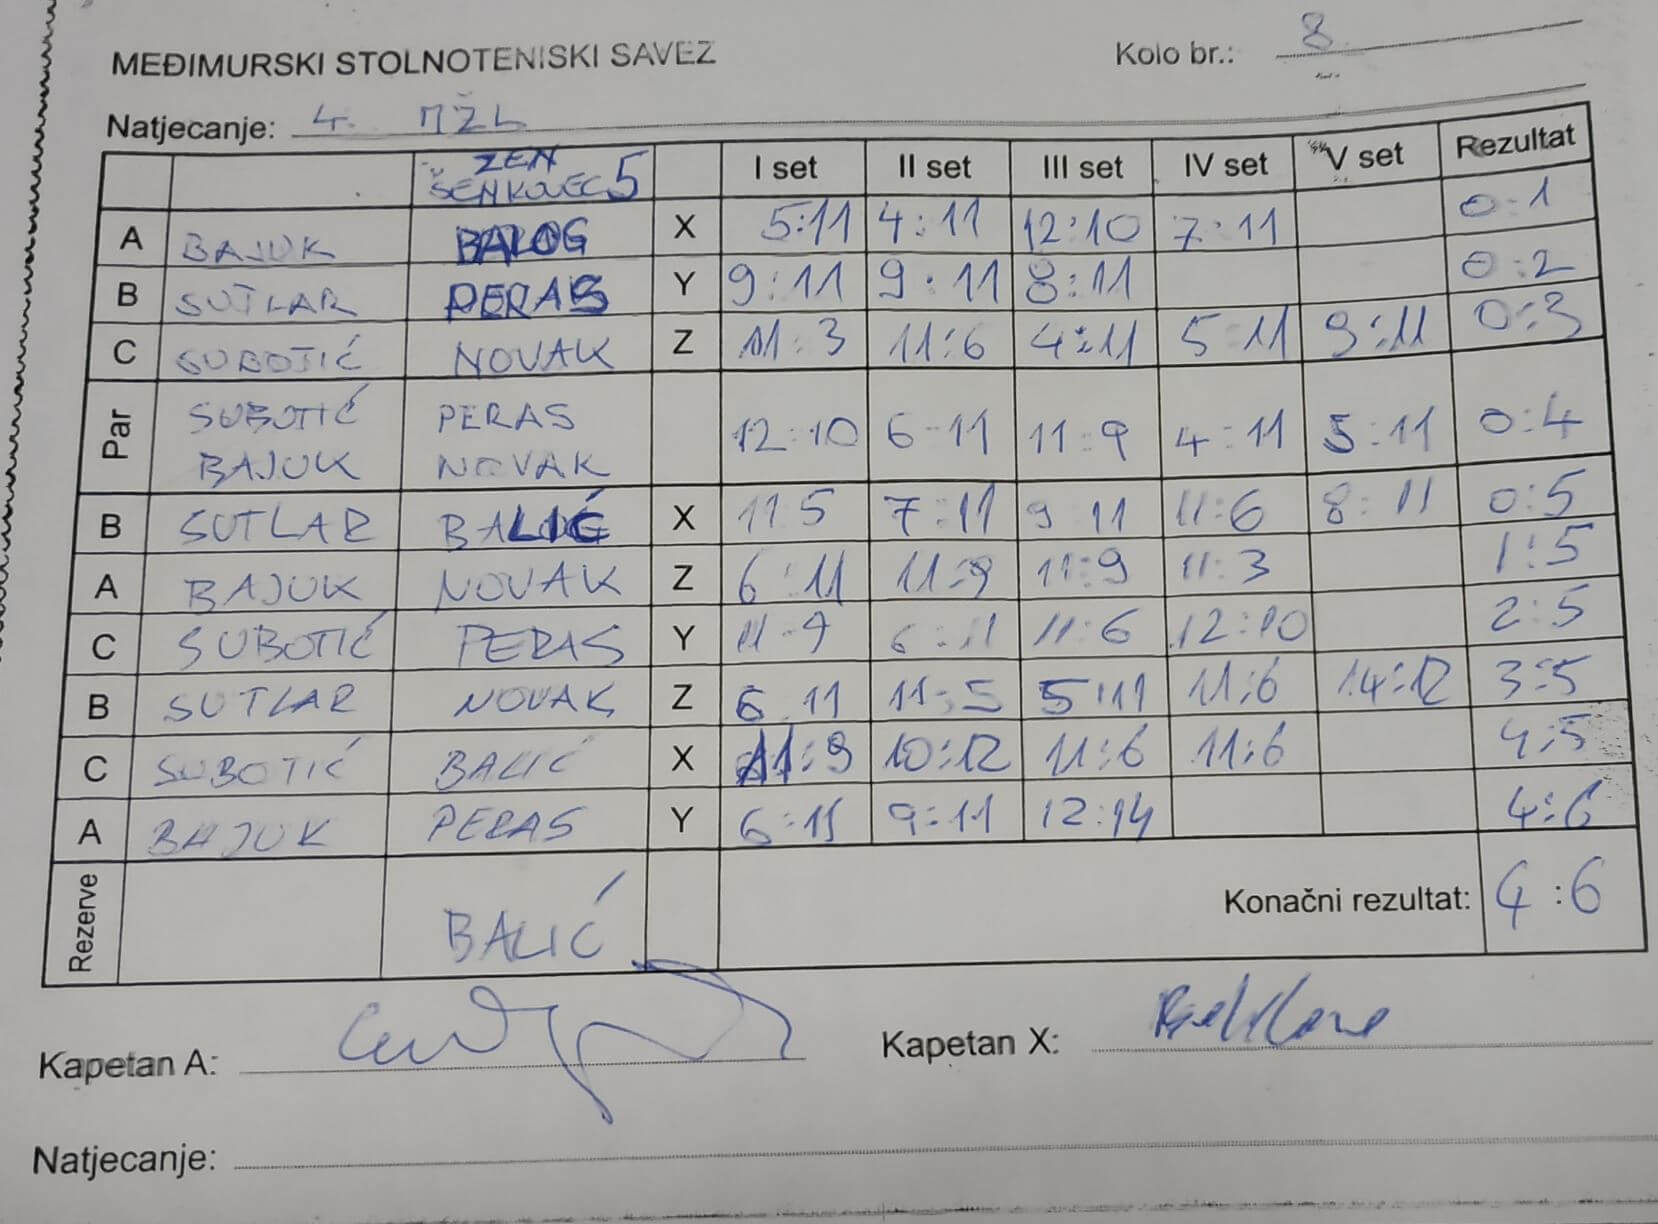 MEĐIMURSKI STOLNOTENISKI SAVEZ Kolo br.: 8.
Natjecanje: 4. MŽL
ZEN ŠENKOVEC 5 I set II set III set IV set V set Rezultat
A BAJUK BALOG X 5:11 4:11 12:10 7:11 0:1
B SUTLAR PERAS Y 9:11 9:11 8:11 0:2
C SUBOTIĆ NOVAK Z 11:3 11:6 4:11 5:11 9:11 0:3
Par SUBOTIĆ PERAS 12:10 6-11 11:9 4:11 5:11 0:4
BAJUK NOVAK
B SUTLAR BALIĆ X 11 5 7:11 9 11 11:6 8:11 0:5
A BAJUK NOVAK Z 6:11 11:9 11:9 11:3 1:5
C SUBOTIĆ PERAS Y 11-9 6:11 11:6 12:10 2:5
B SUTLAR NOVAK Z 6 11 11:5 5:11 11:6 14:12 3:5
C SUBOTIĆ BALIĆ X 11:9 10:12 11:6 11:6 4:5
A BAJUK PERAS Y 6:11 9:11 12:14 4:6
Rezerve BALIĆ Konačni rezultat: 4:6
Kapetan A: Kapetan X:
Natjecanje: